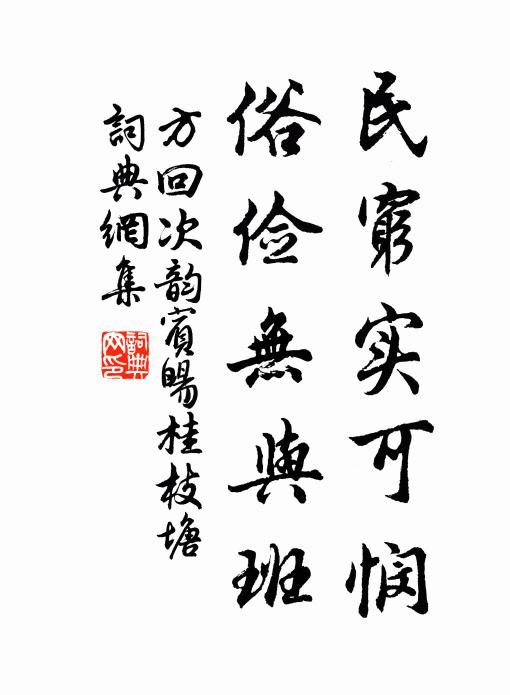 民窮实可悯
俗俭無與班
方回次韵賓暘桂枝塘
詞典網集
詞典网印